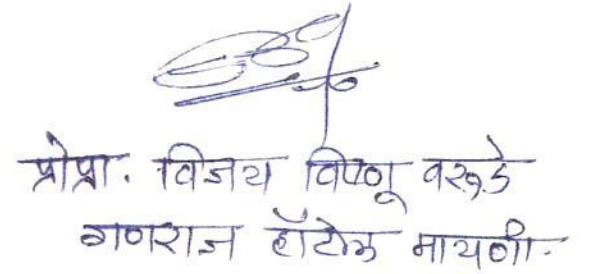 प्रोप्रा. विजय विष्णू वरुडे
गणराज हॉटेल मायणी.